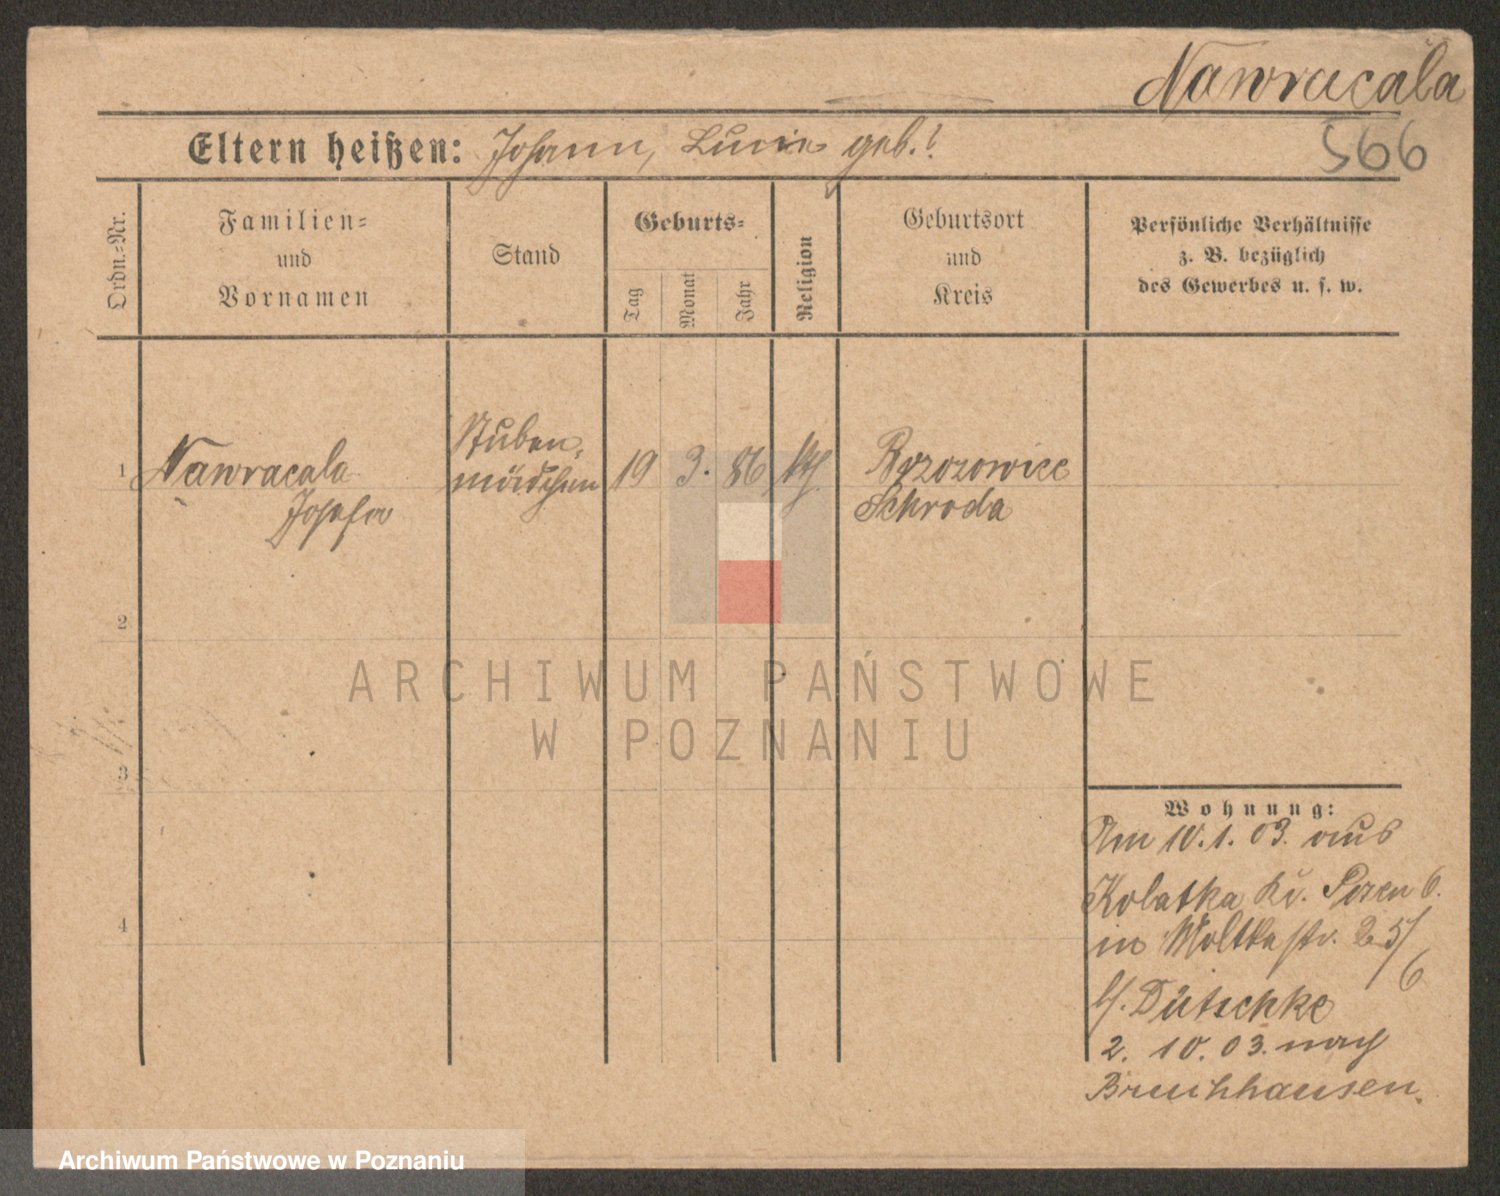 Nawracala
566
Eltern heißen: Johann, Lucie geb.?
Ordn.-Nr.
Familien-
und
Vornamen
Stand
Geburts-
Tag
Monat
Jahr
Religion
Geburtsort
und
Kreis
Persönliche Verhältnisse
z. B. bezüglich
des Gewerbes u. s. w.
1
Nawracala
Josefa
Stuben-
mädchen
19
3.
86
kth.
Brzozowiec
Schroda
2
3
4
Wohnung:
Am 10.1.03. aus
Kolatka Kr. Posen O.
in Moltkestr. 25/
6
b/. Dütschke
2. 10. 03. nach
Bruchhausen.
ARCHIWUM PAŃSTWOWE
W POZNANIU
Archiwum Państwowe w Poznaniu